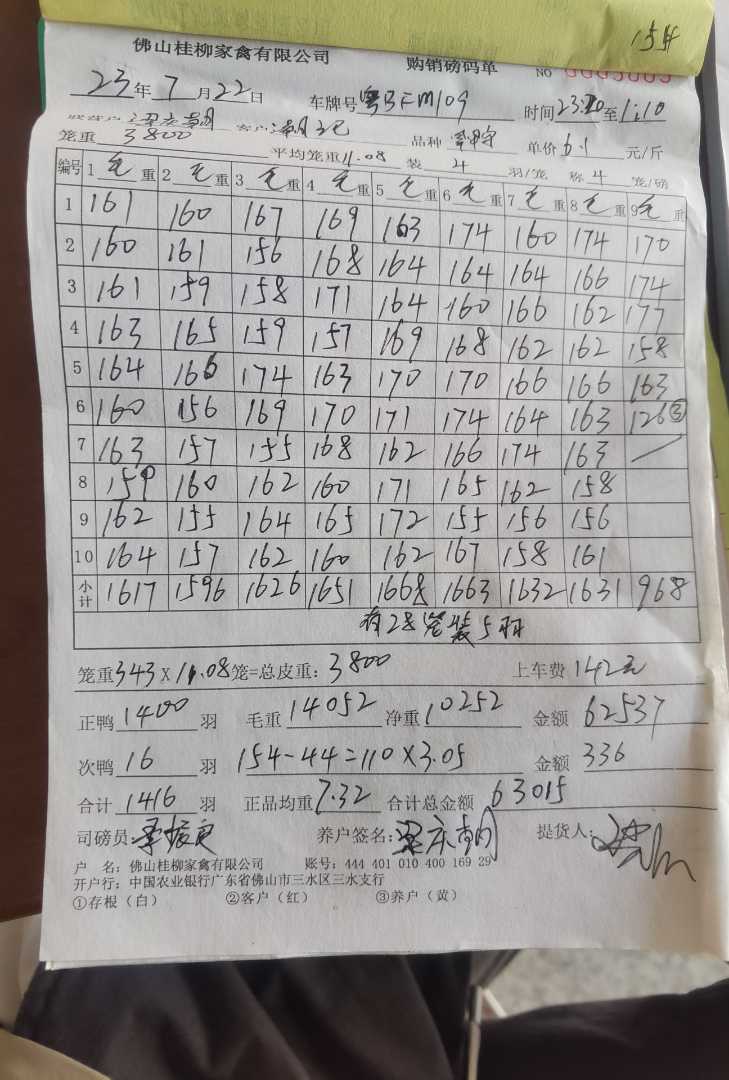 154
佛山桂柳家禽有限公司 购销磅码单 NO
23年7月22日 车牌号粤BFM109 时间23:20至1:10
笼重3800 客户 品种 单价6.1元/斤
平均笼重11.08 装4羽/笼 称4笼/磅
编号 1毛重 2毛重 3毛重 4毛重 5毛重 6毛重 7毛重 8毛重 9毛重
1 161 160 167 169 163 174 160 174 170
2 160 161 156 168 164 164 164 166 174
3 161 159 158 171 164 160 166 162 177
4 163 165 159 157 169 168 162 162 158
5 164 166 174 163 170 170 166 166 163
6 160 156 169 170 171 174 164 163 126③
7 163 157 155 168 162 166 174 163
8 159 160 162 160 171 165 162 158
9 162 155 164 165 172 155 156 156
10 164 157 162 160 162 167 158 161
小计 1617 1596 1626 1651 1668 1663 1632 1631 968
有28笼装5羽
笼重343×11.08笼=总皮重:3800 上车费142元
正鸭1400羽 毛重14052 净重10252 金额62537
次鸭16羽 154-44=110×3.05 金额336
合计1416羽 正品均重7.32 合计总金额63015
司磅员: 养户签名:梁庆朝 提货人:
户 名:佛山桂柳家禽有限公司 账号:444 401 010 400 169 29
开户行:中国农业银行广东省佛山市三水区三水支行
①存根(白) ②客户(红) ③养户(黄)